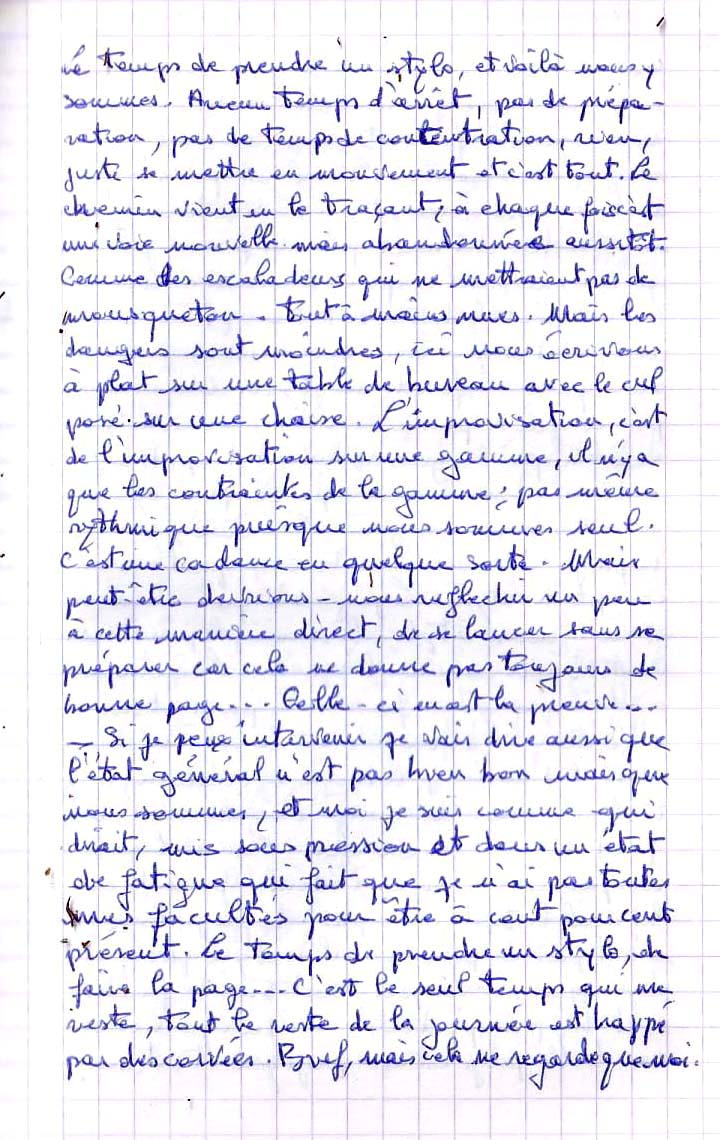 Le temps de prendre un stylo, et voilà nous y
sommes. Aucun temps d'arrêt, pas de prépa-
ration, pas de temps de contentration, rien,
juste se mettre en mouvement et c'est tout. Le
chemin vient en le traçant, à chaque fois c'est
une voie nouvelle mais abandonnée aussitôt.
Comme des escaladeurs qui ne mettraient pas de
mousqueton. Tout à mains nues. Mais les
dangers sont moindres, ici nous écrivons
à plat sur une table de bureau avec le cul
posé sur une chaise. L'improvisation, c'est
de l'improvisation sur une gamme, il n'y a
que les contraintes de la gamme, pas même
rythmique puisque nous sommes seul.
C'est une cadance en quelque sorte. Mais
peut-être devrions-nous reflechir un peu
à cette manière direct, de se lancer sans se
préparer car cela ne donne pas toujours de
bonne page... Celle-ci en est la preuve...
– Si je peux intervenir je vais dire aussi que
l'état général n'est pas bien bon mais que
nous sommes, et moi je suis comme qui
dirait, mis sous pression et dans un état
de fatigue qui fait que je n'ai pas toutes
mes facultés pour être à cent pour cent
présent. Le temps de prendre un stylo, de
faire la page... C'est le seul temps qui me
reste, tout le reste de la journée est happé
par des corvées. Bref, mais cela ne regarde que moi.